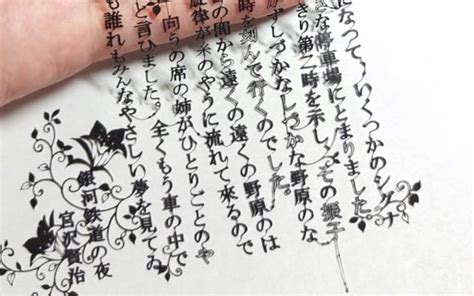 になって、いくつかのシグナ
さな停車場にとまりました。
きり第二時を示し、その振子
ずしづかなしづかな野原のな
時を刻んで行くのでした。
の間から遠くの遠くの野原のは
旋律が糸のやうに流れて来るので
向うの席の姉がひとりごとのや
と言ひました。全くもう車の中で
も誰れもみんなやさしい夢を見てゐ
銀河鉄道の夜
宮沢賢治